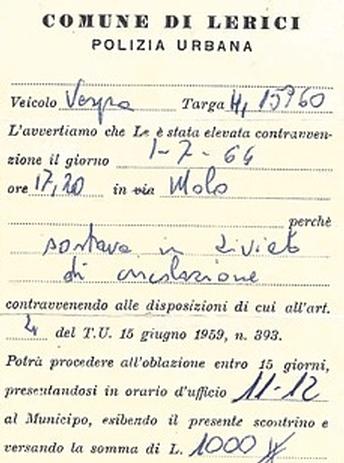 COMUNE DI LERICI
POLIZIA URBANA
Veicolo Vespa Targa 15960
L'avvertiamo che Le è stata elevata contravven-
zione il giorno 1-7-64
ore 17,20 in via Molo
perchè
sostava in divieto
di circolazione
contravvenendo alle disposizioni di cui all'art.
4 del T.U. 15 giugno 1959, n. 393.
Potrà procedere all'oblazione entro 15 giorni,
presentandosi in orario d'ufficio 11-12
al Municipo, esibendo il presente scontrino e
versando la somma di L. 1000